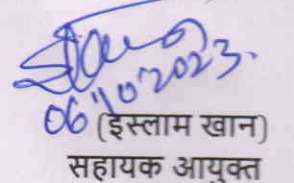 06/10/2023.
(इस्लाम खान)
सहायक आयुक्त